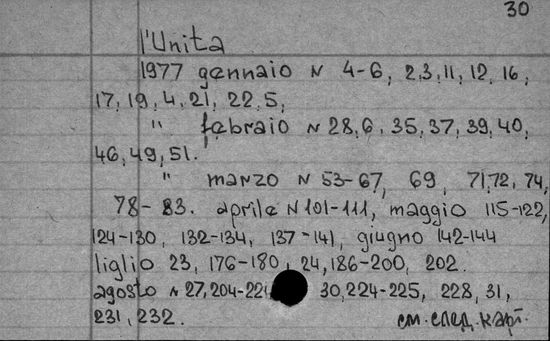 30
l'Unita
1977 gennaio N 4-6, 2,3,11, 12, 16,
17, 19, 4, 21, 22, 5,
" febraio N 28, 6, 35, 37, 39, 40,
46, 49, 51.
" marzo N 53-67, 69, 71,72, 74,
78-83. aprile N 101-111, maggio 115-122,
124-130, 132-134, 137-141, giugno 142-144
liglio 23, 176-180, 24, 186-200, 202.
agosto N 27, 204-22 30, 224-225, 228, 31,
231, 232. см. след. карт.